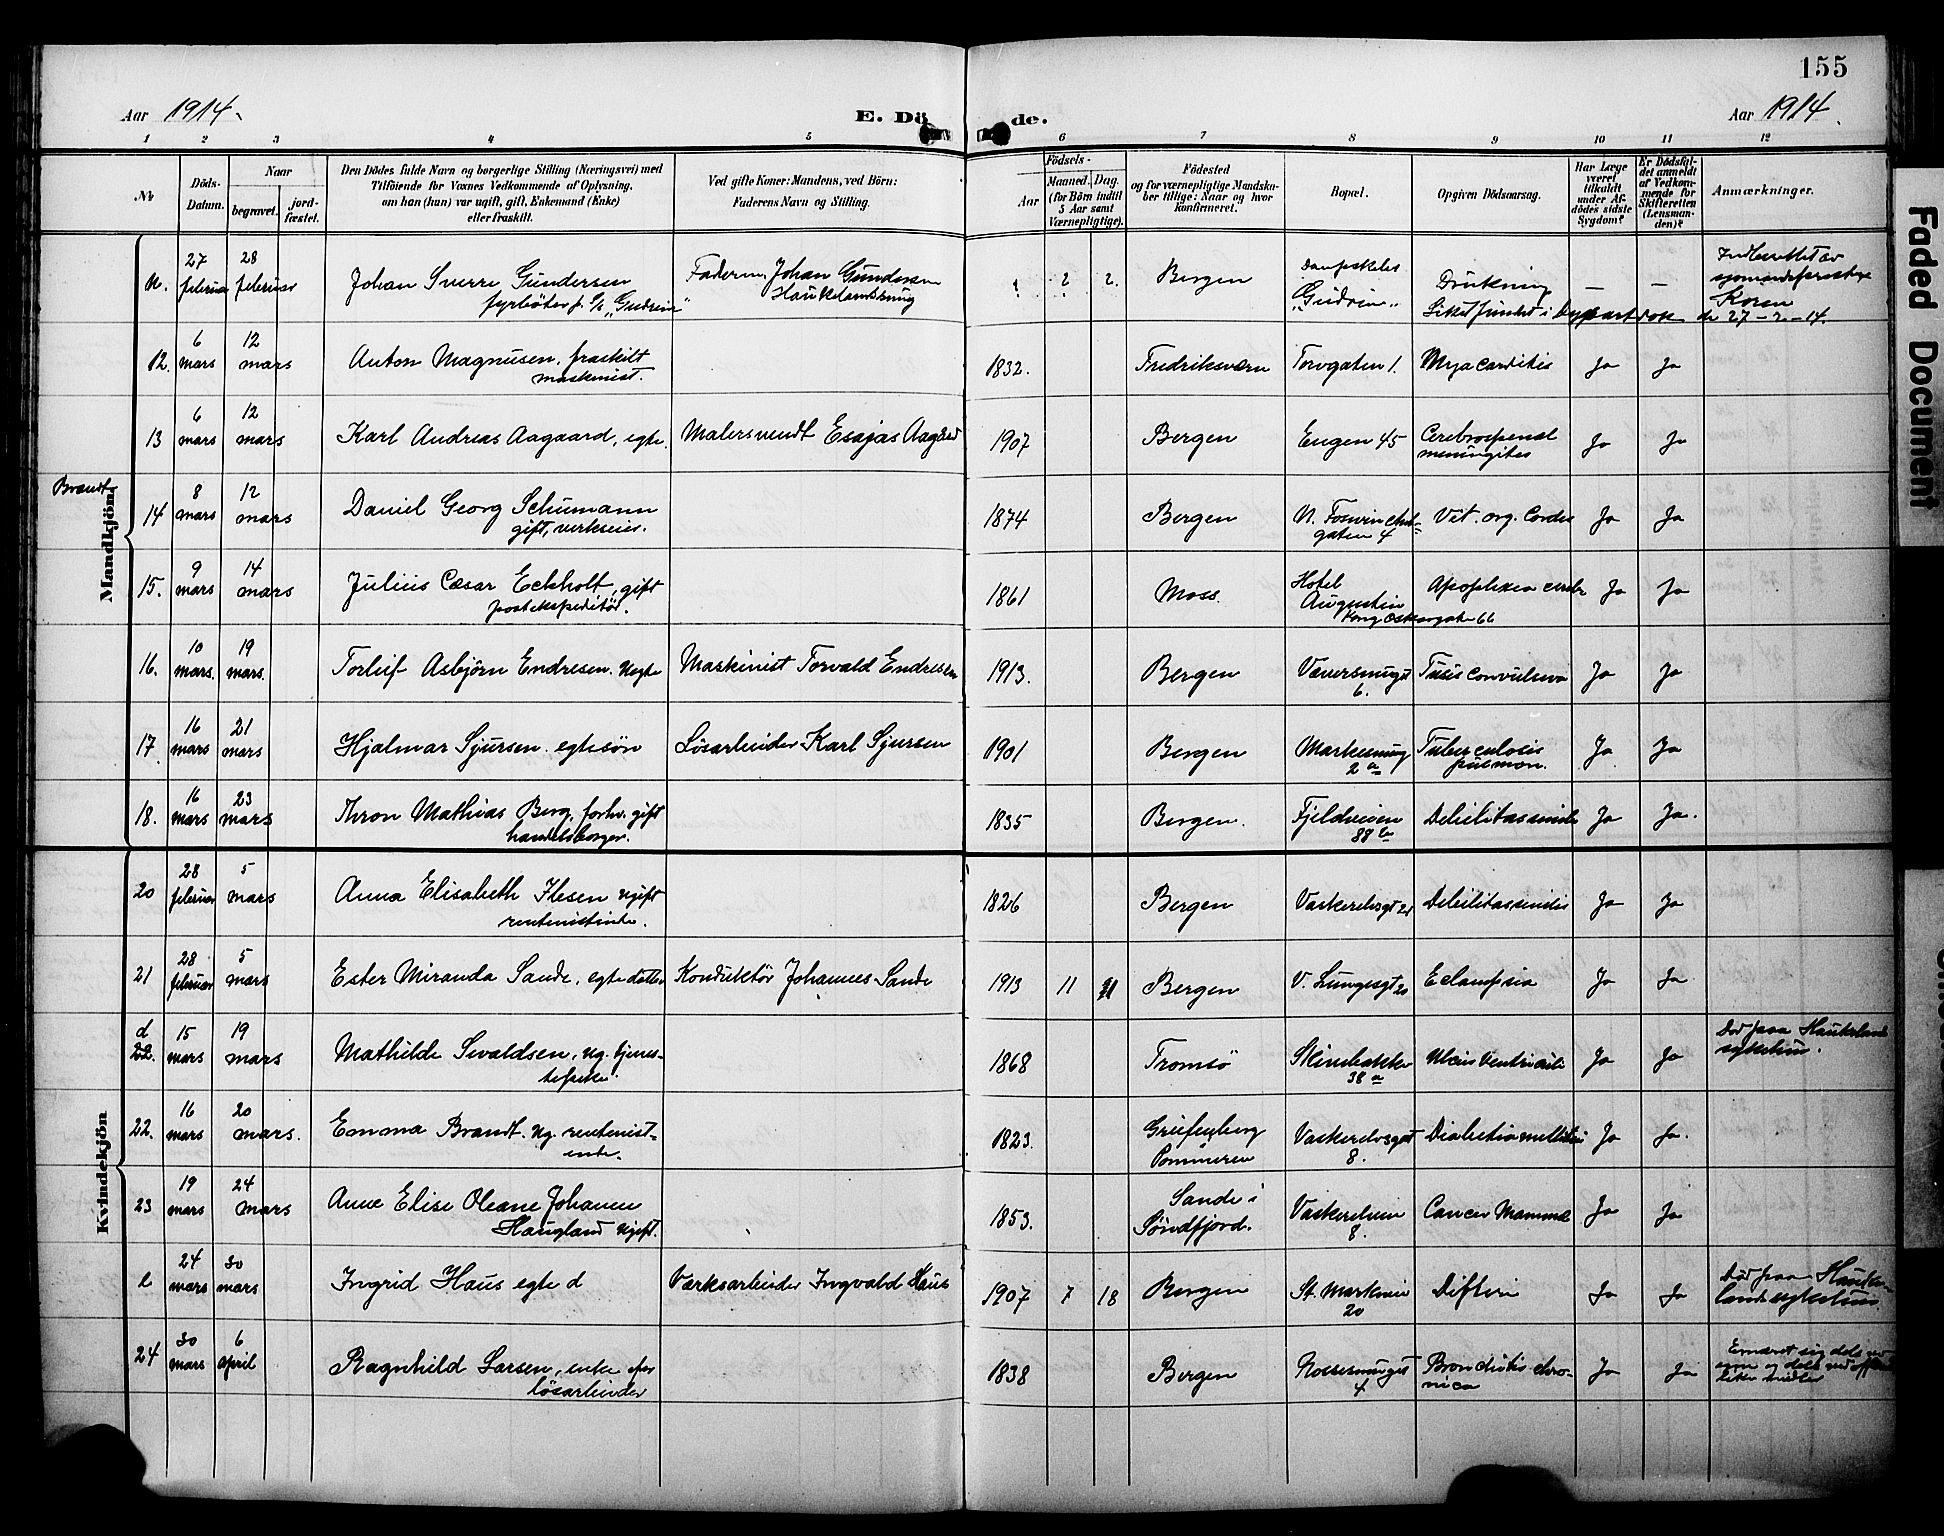 155
Aar 1914.
E. Döde.
Aar 1914.
1 2 3 4 5 6 7 8 9 10 11 12
No
Döds-Datum.
Naar
begravet.
jordfæstet.
Den Dödes fulde Navn og borgerlige Stilling (Næringsvei) med
Tilföiende for Voxnes Vedkommende af Oplysning,
om han (hun) var ugift, gift, Enkemand (Enke)
eller fraskilt.
Ved gifte Koner: Mandens, ved Börn:
Faderens Navn og Stilling.
Födsels-
Aar
Maaned. Dag.
(for Börn indtil
5 Aar samt
Værnepligtige).
Födested
og for værnepligtige Mandska-
ber tillige: Naar og hvor
konfirmeret.
Bopæl.
Opgiven Dödsaarsag.
Har Læge
været
tilkaldt
under Af-
dødes sidste
Sygdom?
Er Dödsfal-
det anmeldt
af Vedkom-
mende for
Skifteretten
(Lensman-
den)?
Anmærkninger.
Mandkjön
27 februar 28 februar Johan Sverre Gundersen Faderen, Johan Gundersen 2 2. Bergen Drukning — —
fyrböter "Gudrun"
Koren
27-2-14.
12. 6 mars 12 mars Anton Magnusen, fraskilt 1832. Fredriksværn Torvgaten 1. Myocarditis Ja Ja
maskinist.
13 6 mars 12 mars Karl Andreas Aagaard, egte. Malersvendt Esajas Aagaard 1907 Bergen Engen 45 Cerebrospinal Ja Ja
meningites
Brandt
14 8 mars 12 mars Daniel Georg Schumann 1874 Bergen Vit. org. Cordis Ja Ja
gift, verkseier. gaten 4
15. 9 mars 14 mars Julius Cæsar Eckholt, gift 1861 Moss. Hotel Augustin Apoplexia cerebr Ja Ja
postekspeditör.
16. 10 mars. 19 mars. Torleif Asbjörn Endresen. Uegte Maskinist Torvald Endresen 1913. Bergen Tusis convulsiva Ja Ja
6.
17. 16 mars 21 mars Hjalmar Sjursen. egte sön Lösarbeider Karl Sjursen 1901 Bergen Markesmug Tuberculosis Ja Ja
2 a pulmon.
18. 16 mars 23 mars Thron Mathias Berg, forhv. gift 1835 Bergen. Fjeldveien Debilitas senilis Ja Ja.
handelsborger. 88 b
Kvindekjön
20 28 februar 5 mars Anna Elisabeth Ilesen ugift 1826 Bergen Vaskerelvsgt 21 Debilitas senilis Ja Ja
rentenistinde.
21 28 februar 5 mars Ester Miranda Sande, egte datter Konduktör Johannes Sande 1913 11 Bergen V. Lungesgt 20 Eclampsia Ja Ja
d 22. 15 mars 19 mars Mathilde Sivaldsen, ug. tjenes- 1868 Tromsö Skivebakken Ulcus Ventriculi Ja Ja Död paa Haukeland
tepike. 38 a sykehus.
22. 16 mars 20 mars. Emma Brandt. ug. rentenist- 1823. Greifenberg Vaskerelvsgt Diabetes mellitus Ja Ja.
inde. Pommeren 8.
23 19 mars 24 mars Anne Elise Oleane Johanne 1853. Sande i Vaskerelven Cancer Mammae Ja Ja
Haugland ugift. Söndfjord. 8.
e 24 mars 30 mars Ingrid Haus egte d Verksarbeider Ingvald Haus 1907 7 18 Bergen St. Markevei Difteri Ja Ja Död paa Hauke-
20 lands sykehus.
24 30 mars 6 april Ragnhild Larsen, enke efter 1838 Bergen Bronchitis chro- Ja Ja Ernæret sig dels ved
lösarbeider 4 nica egne og dels ved offent
like midler
Faded Document